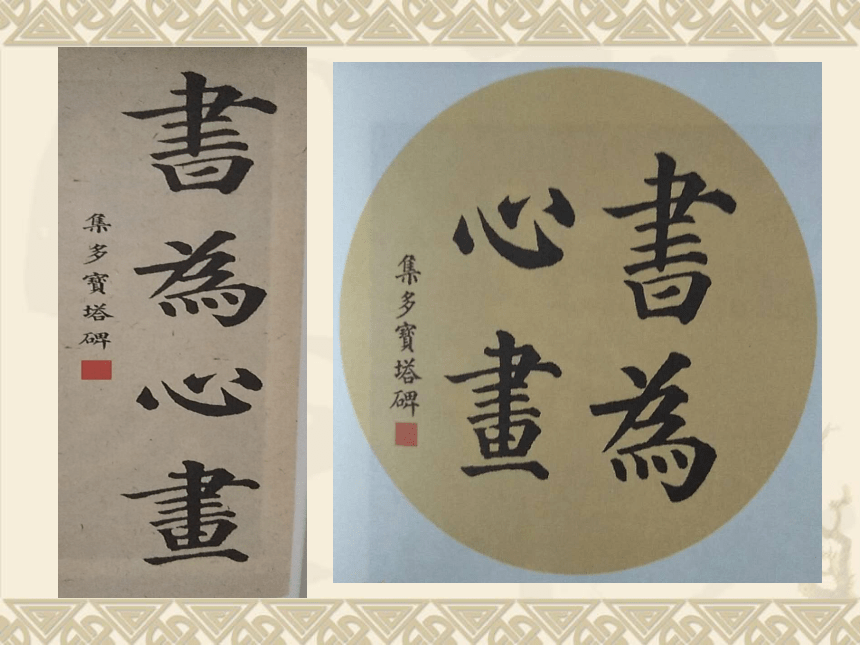 書為心畫
集多寶塔碑
書為
心畫
集多寶塔碑